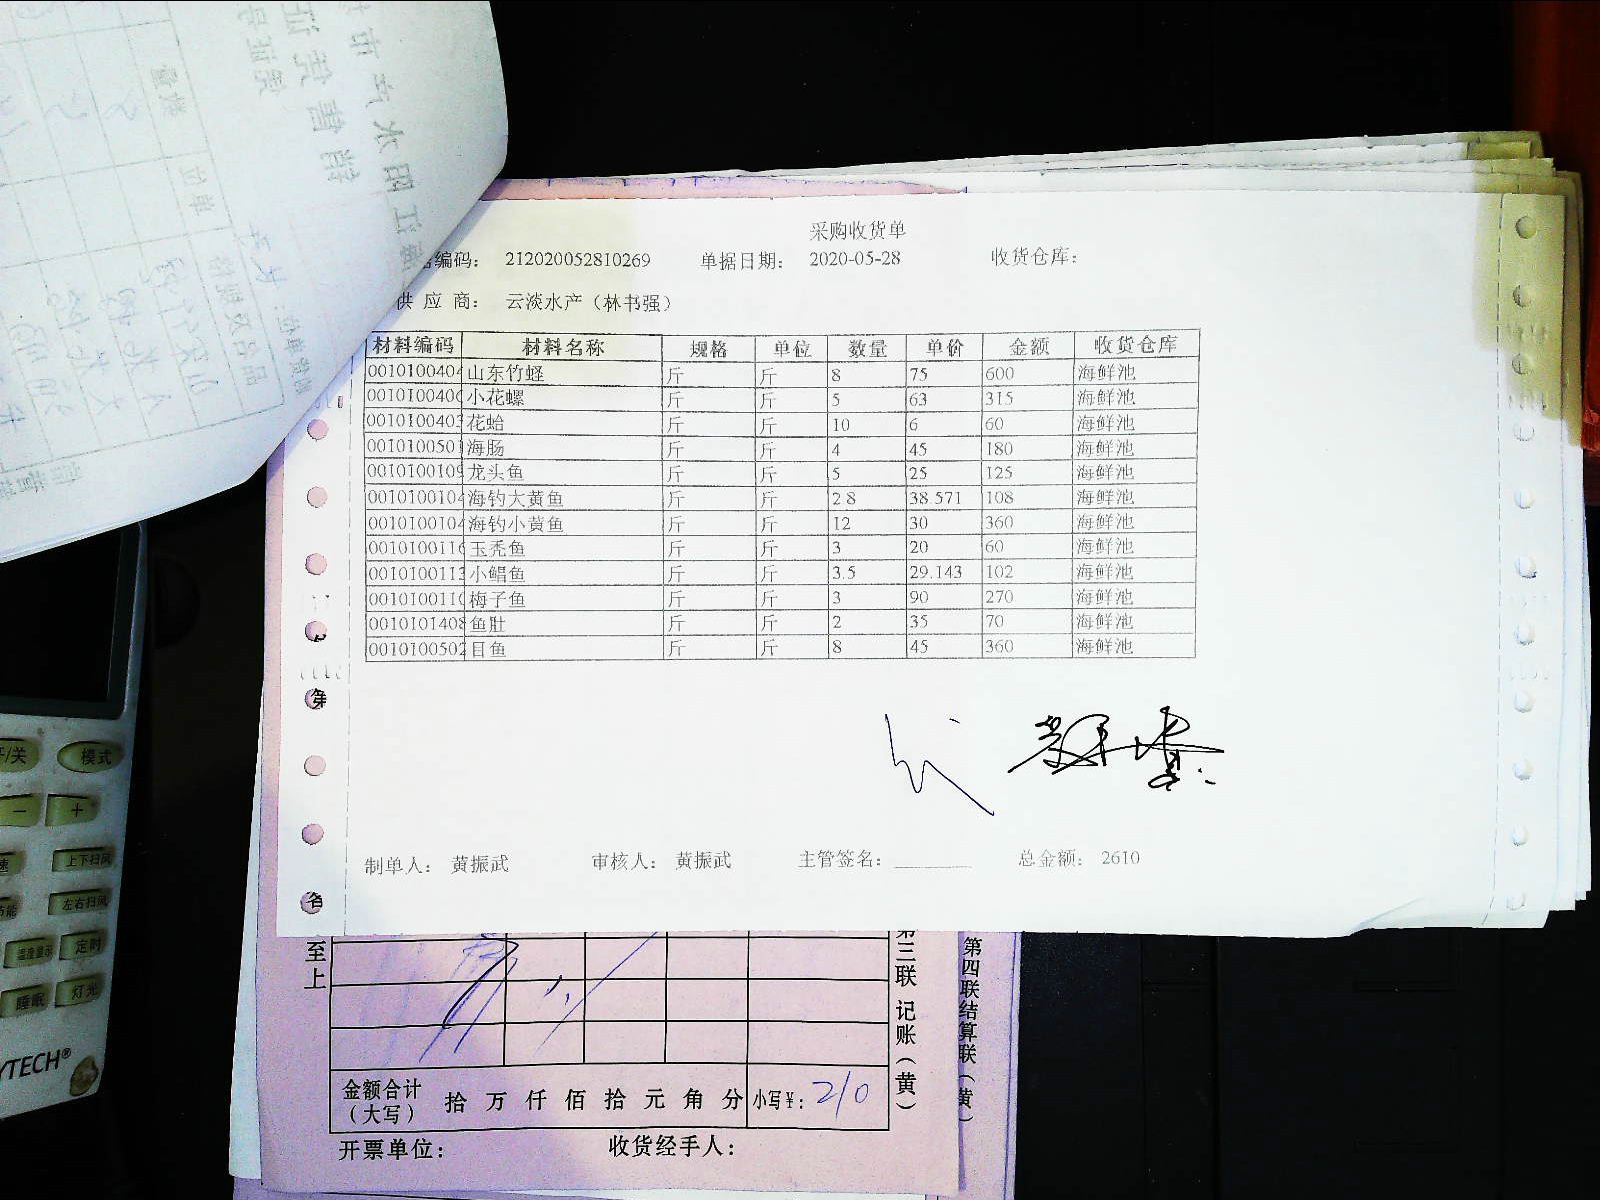 采购收货单
编码： 212020052810269 单据日期： 2020-05-28 收货仓库：
供 应 商： 云淡水产（林书强）
材料编码 材料名称 规格 单位 数量 单价 金额 收货仓库
0010100404 山东竹蛏 斤 斤 8 75 600 海鲜池
001010040 小花螺 斤 斤 5 63 315 海鲜池
0010100403 花蛤 斤 斤 10 6 60 海鲜池
0010100501 海肠 斤 斤 4 45 180 海鲜池
0010100109 龙头鱼 斤 斤 5 25 125 海鲜池
0010100104 海钓大黄鱼 斤 斤 2.8 38.571 108 海鲜池
0010100104 海钓小黄鱼 斤 斤 12 30 360 海鲜池
001010011 玉秃鱼 斤 斤 3 20 60 海鲜池
001010011 小鲳鱼 斤 斤 3.5 29.143 102 海鲜池
001010011 梅子鱼 斤 斤 3 90 270 海鲜池
0010101408 鱼肚 斤 斤 2 35 70 海鲜池
0010100502 目鱼 斤 斤 8 45 360 海鲜池
制单人： 黄振武 审核人： 黄振武 主管签名： 总金额： 2610
第
名
至上
第三联 记账（黄）
第四联结算联（黄）
金额合计（大写） 拾 万 仟 佰 拾 元 角 分 小写¥： 210
开票单位： 收货经手人：
开/关 模式
－ ＋
速 上下扫风
节能 左右扫风
温度显示 定时
睡眠 灯光
YTECH®